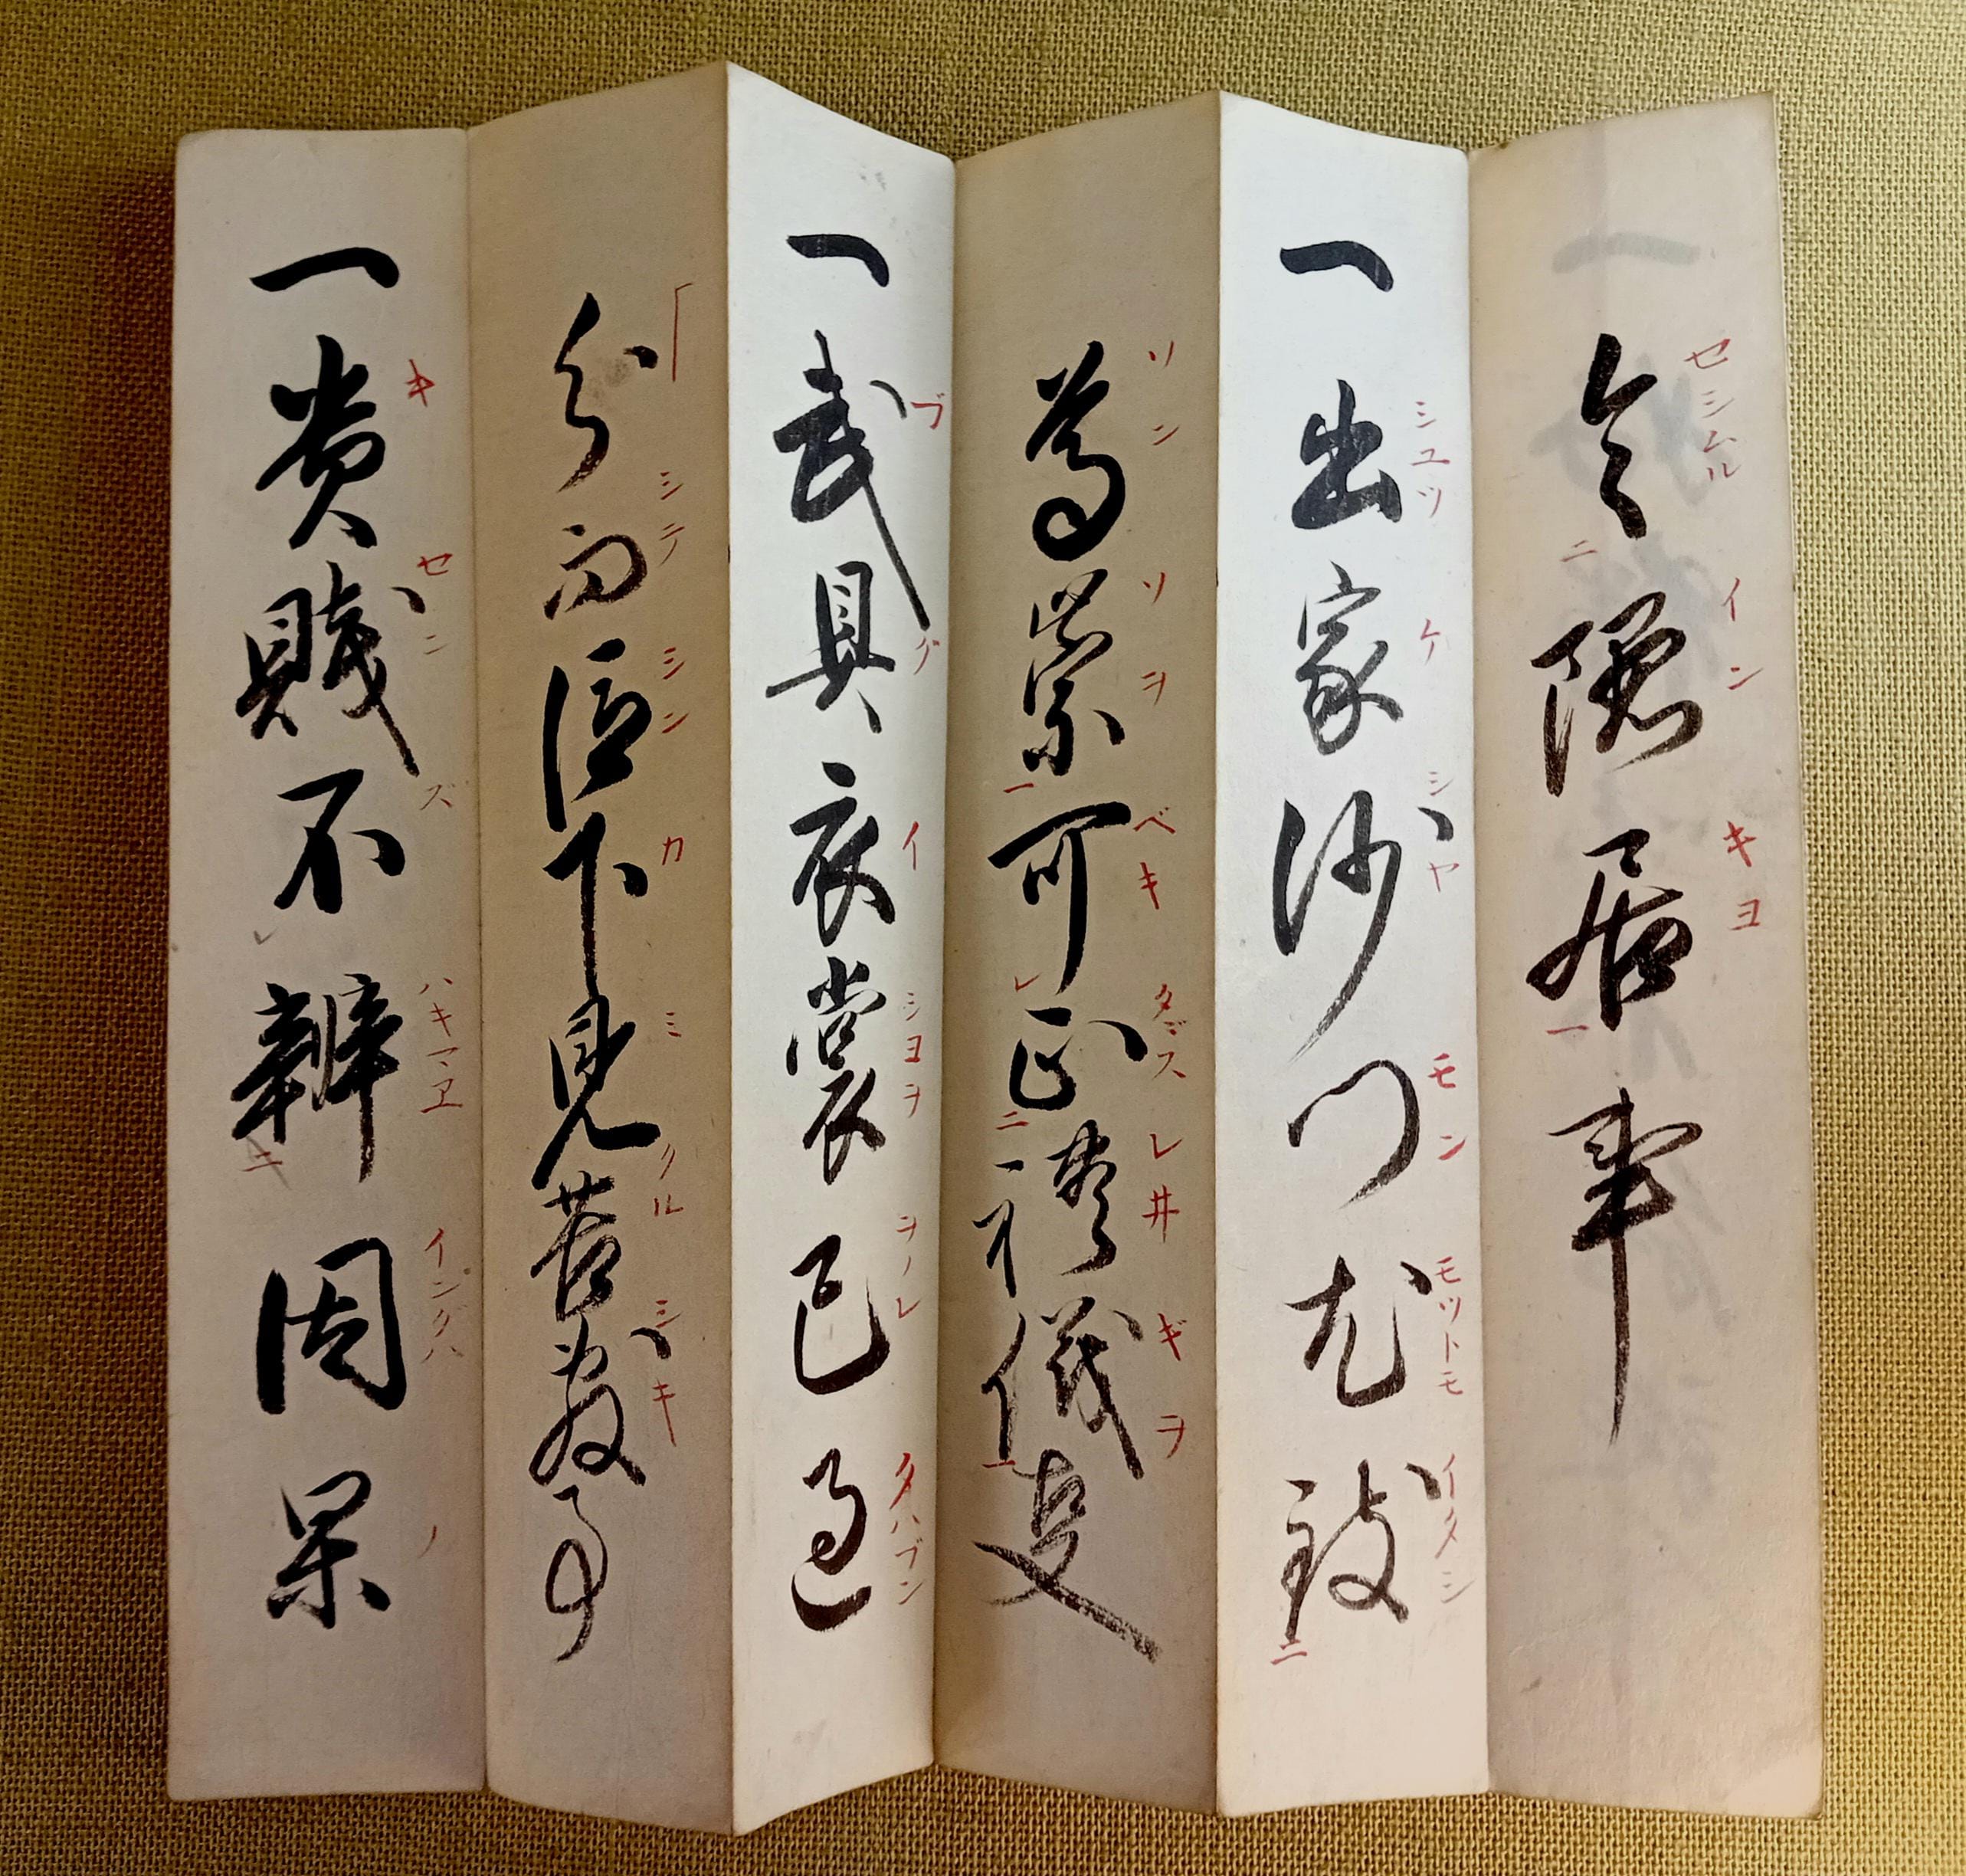 セシムル イン キヨ
令隠居事
シユツ ケ シヤ モン モツトモ イタシ
一出家沙門尤致
ソン ソヲ ベキ タダス レ井 ギヲ
尊崇可正禮儀事
ブ グ イ シヨヲ ヲノレ クハブン
一武具衣裳己過
シテ シン カ ミ クル シキ
分而臣下見苦敷事
キ セン ズ ハキマヱ イングハ ノ
一貴賤不辨因果